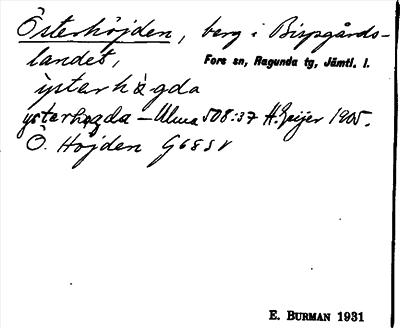 Österhöjden, berg i Bispgårds-
landet, Fors sn, Ragunda tg, Jämtl. l.
ẏsterhö̀gda
ysterhøgda – Ulma 508:37 H. Geijer 1905.
Ö. Höjden G68SV
E. BURMAN 1931